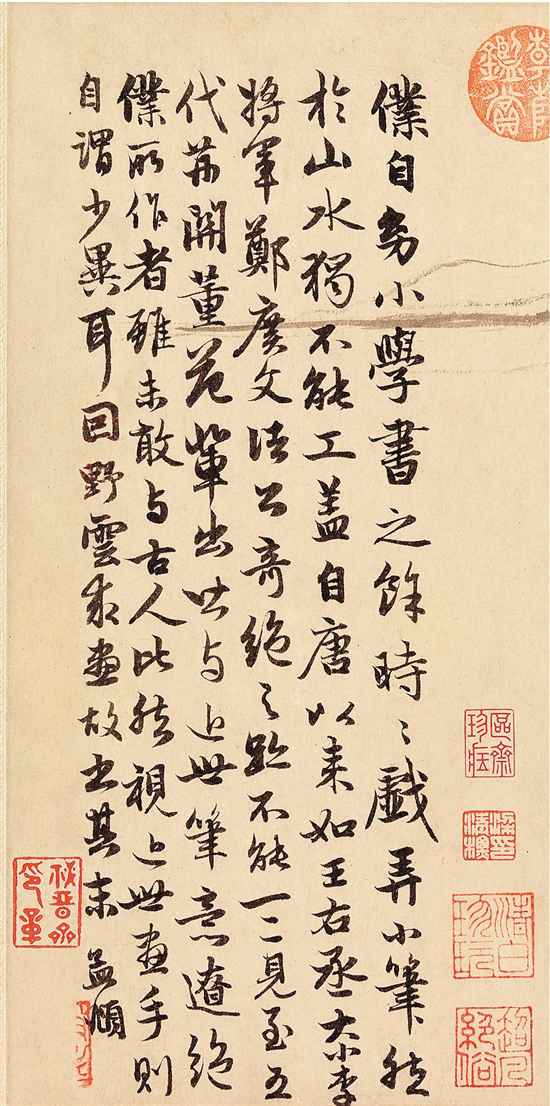 清白珍玩
僕自幼小學書之餘時〻戲弄小筆然
於山水獨不能工盖自唐以来如王右丞大小李
將軍鄭廣文諸公奇絶之跡不能一二見至五
代荆關董范輩出皆与近世筆意遼絶
僕所作者雖未敢与古人比然視近世畫手則
自謂少異耳因野雲求畫故書其末 孟頫